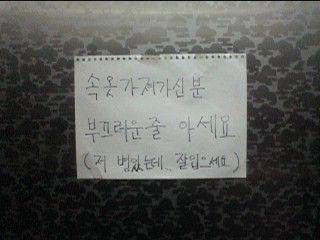 속옷가져가신분
부끄러운줄 아세요
(저 병있는데 잘입으세요)